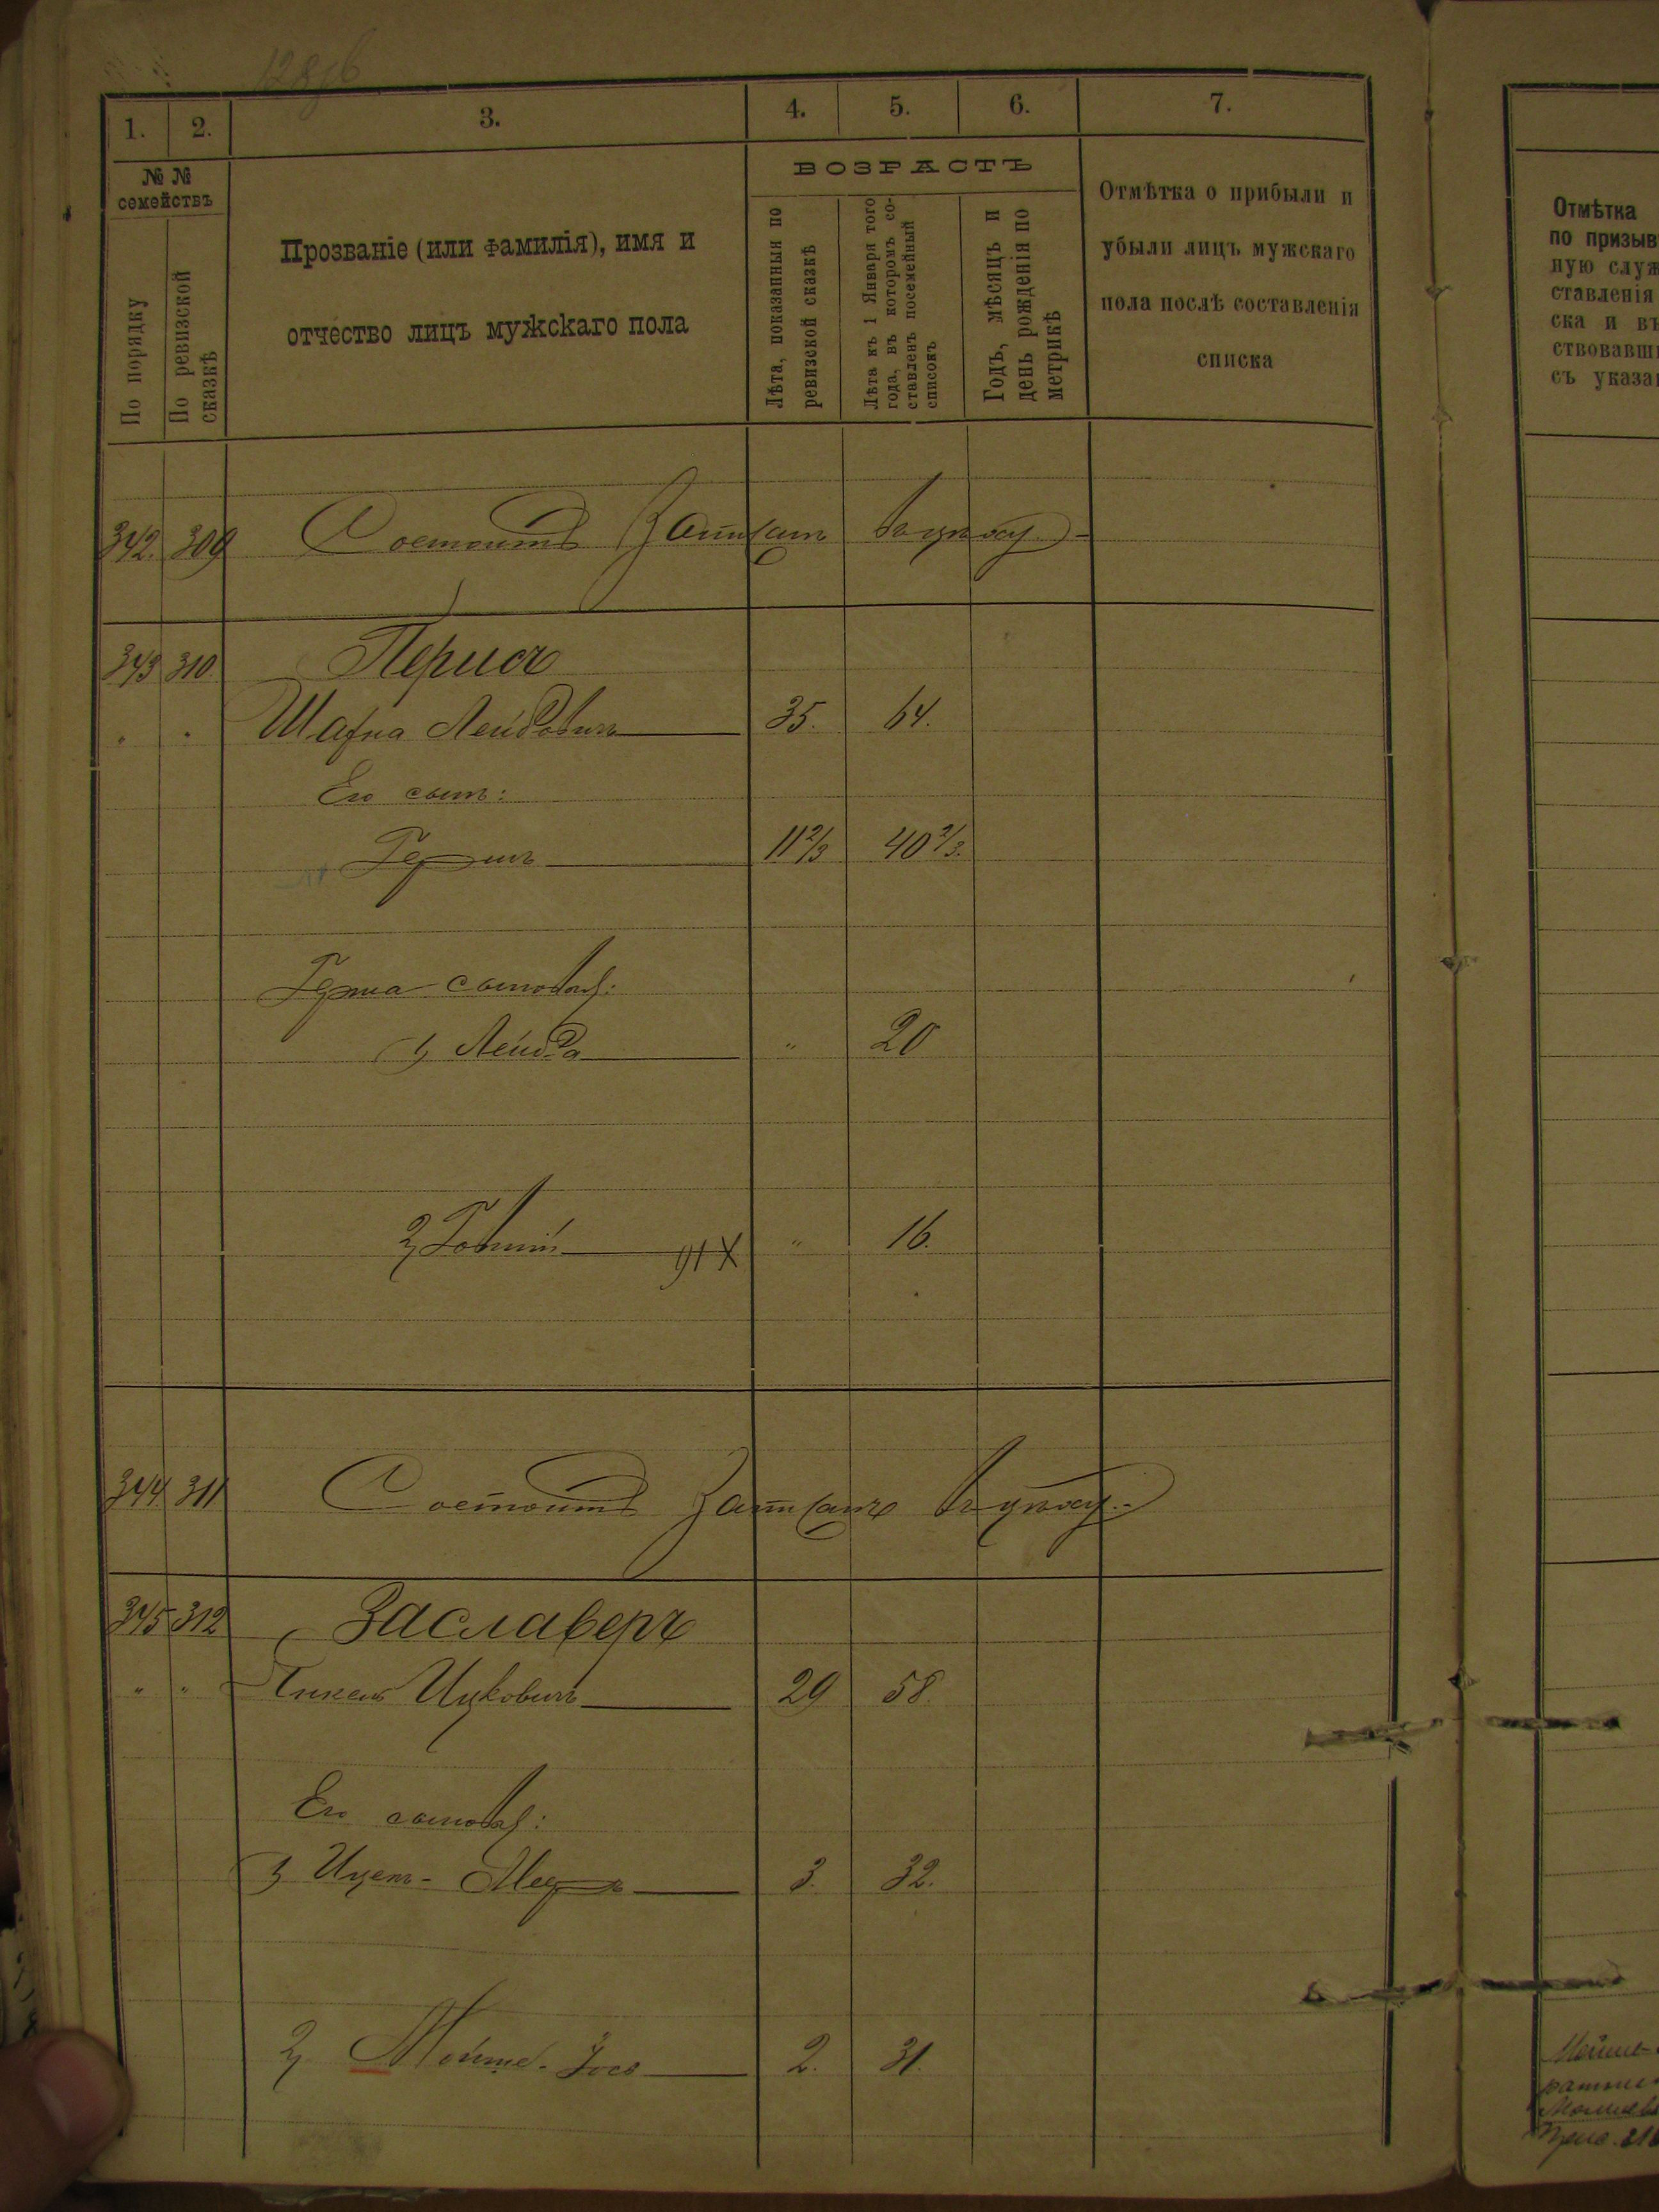 1. 2. 3. 4. 5. 6. 7.
№ №
семействъ
По порядку
По ревизской
сказкѣ
Прозваніе (или фамилія), имя и
отчество лицъ мужскаго пола
ВОЗРАСТЪ
Лѣта, показанныя по
ревизской сказкѣ
Лѣта къ 1 Января того
года, въ которомъ со-
ставленъ посемейный
списокъ
Годъ, мѣсяцъ и
день рожденія по
метрикѣ
Отмѣтка о прибыли и
убыли лицъ мужскаго
пола послѣ составленія
списка
342. 309 Состоитъ Записанъ въ цеху.-
343 310. Перисъ
" " Шафна Лейбовичъ 35. 64.
Его сынъ:
Гершъ 11 2/3 40 2/3.
Герша сыновья:
1) Лейба " 20
2) " 16.
344 311 Состоитъ Записанъ въ цеху.-
345 312 Заславеръ
" " Янкель Ицковичъ 29 58.
Его сыновья:
1) Ицекъ-Мееръ 3. 32.
2) Мойше-Іось 2. 31.
Отмѣтка
по призыв
ную служ
ставленія
ска и въ
ствовавши
съ указа
Мойше-